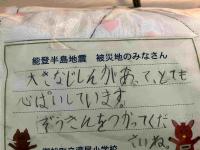 能登半島地震　被災地のみなさん
大きなじしんがあって、とても
心ぱいしています。
ぞうさんをつかってくだ
さいね。
小学校